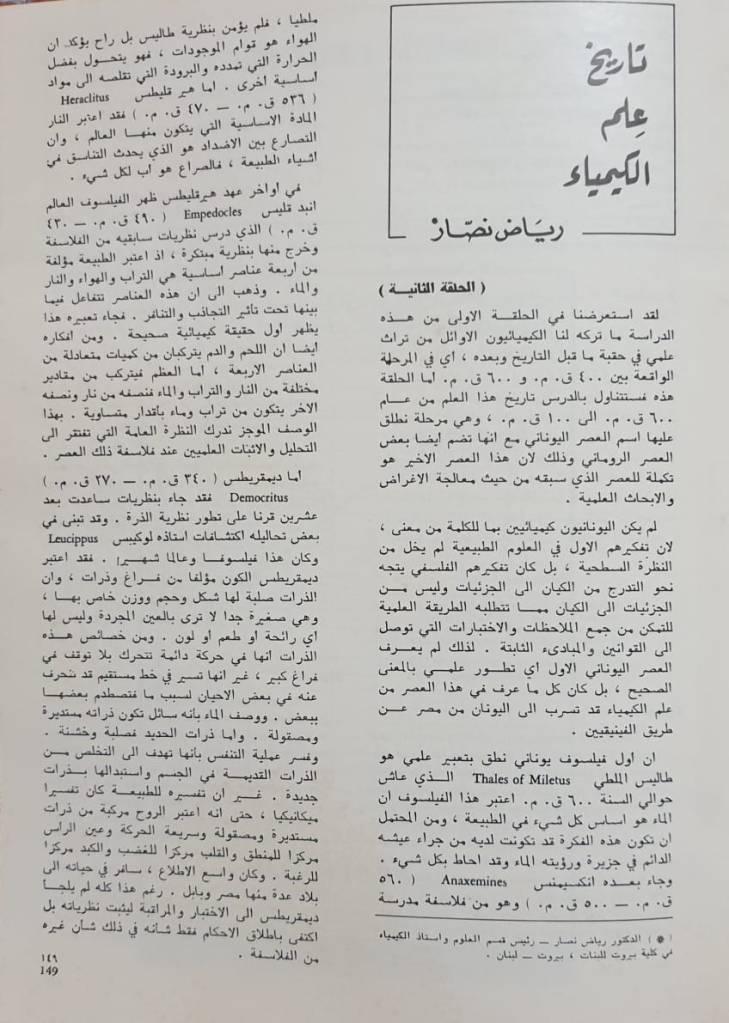 تاريخ
علم
الكيمياء
رياض نصار
( الحلقة الثانية )
لقد استعرضنا في الحلقة الاولى من هذه
الدراسة ما تركه لنا الكيميائيون الاوائل من تراث
علمي في حقبة ما قبل التاريخ وبعده ، اي في المرحلة
الواقعة بين ٤٠٠٠ ق.م. و ٦٠٠ ق.م. اما الحلقة
هذه فسنتناول بالدرس تاريخ هذا العلم من عام
٦٠٠ ق.م. الى ١٠٠ ق.م. ، وهي مرحلة نطلق
عليها اسم العصر اليوناني مع انها تضم ايضا بعض
العصر الروماني وذلك لان هذا العصر الاخير هو
تكملة للعصر الذي سبقه من حيث معالجة الاغراض
والابحاث العلمية .
لم يكن اليونانيون كيميائيين بما للكلمة من معنى ،
لان تفكيرهم الاول في العلوم الطبيعية لم يخل من
النظرة السطحية ، بل كان تفكيرهم الفلسفي يتجه
نحو التدرج من الكيان الى الجزئيات وليس من
الجزئيات الى الكيان مما تتطلبه الطريقة العلمية
للتمكن من جمع الملاحظات والاختبارات التي توصل
الى القوانين والمبادىء الثابتة . لذلك لم يعرف
العصر اليوناني الاول اي تطور علمي بالمعنى
الصحيح ، بل كان كل ما عرف في هذا العصر من
علم الكيمياء قد تسرب الى اليونان من مصر عن
طريق الفينيقيين .
ان اول فيلسوف يوناني نطق بتعبير علمي هو
طاليس الملطي Thales of Miletus الذي عاش
حوالي السنة ٦٠٠ ق.م. اعتبر هذا الفيلسوف ان
الماء هو اساس كل شيء في الطبيعة ، ومن المحتمل
ان تكون هذه الفكرة قد تكونت لديه من جراء عيشه
الدائم في جزيرة ورؤيته الماء وقد احاط بكل شيء .
وجاء بعده انكسيمنس Anaxemines ( ٥٦٠
ق.م. — ٥٠٠ ق.م. ) وهو من فلاسفة مدرسة
( * ) الدكتور رياض نصار — رئيس قسم العلوم واستاذ الكيمياء
في كلية بيروت للبنات ، بيروت — لبنان .
ملطيا ، فلم يؤمن بنظرية طاليس بل راح يؤكد ان
الهواء هو قوام الموجودات ، فهو يتحول بفضل
الحرارة التي تمدده والبرودة التي تقلصه الى مواد
اساسية اخرى . اما هيرقليطس Heraclitus
( ٥٣٦ ق.م. — ٤٧٠ ق.م. ) فقد اعتبر النار
المادة الاساسية التي يتكون منها العالم ، وان
التصارع بين الاضداد هو الذي يحدث التناسق في
اشياء الطبيعة ، فالصراع هو اب لكل شيء .
في اواخر عهد هيرقليطس ظهر الفيلسوف العالم
انبدقليس Empedocles ( ٤٩٠ ق.م. — ٤٣٠
ق.م. ) الذي درس نظريات سابقيه من الفلاسفة
وخرج منها بنظرية مبتكرة ، اذ اعتبر الطبيعة مؤلفة
من اربعة عناصر اساسية هي التراب والهواء والنار
والماء . وذهب الى ان هذه العناصر تتفاعل فيما
بينها تحت تأثير التجاذب والتنافر . فجاء تعبيره هذا
يظهر اول حقيقة كيميائية صحيحة . ومن افكاره
ايضا ان اللحم والدم يتركبان من كميات متعادلة من
العناصر الاربعة ، اما العظم فيتركب من مقادير
مختلفة من النار والتراب والماء فنصفه من نار ونصفه
الاخر يتكون من تراب وماء بأقدار متساوية . بهذا
الوصف الموجز ندرك النظرة العامة التي تفتقر الى
التحليل والاثبات العلميين عند فلاسفة ذلك العصر .
اما ديمقريطس ( ٣٤٠ ق.م. — ٢٧٠ ق.م. )
Democritus فقد جاء بنظريات ساعدت بعد
عشرين قرنا على تطور نظرية الذرة . وقد تبنى في
بعض تحاليله اكتشافات استاذه لوكيبس Leucippus
وكان هذا فيلسوفا وعالما شهيرا . فقد اعتبر
ديمقريطس الكون مؤلفا من فراغ وذرات ، وان
الذرات صلبة لها شكل وحجم ووزن خاص بها ،
وهي صغيرة جدا لا ترى بالعين المجردة وليس لها
اي رائحة او طعم او لون . ومن خصائص هذه
الذرات انها في حركة دائمة تتحرك بلا توقف في
فراغ كبير ، غير انها تسير في خط مستقيم قد تنحرف
عنه في بعض الاحيان لسبب ما فتصطدم بعضها
ببعض . ووصف الماء بأنه سائل تكون ذراته مستديرة
ومصقولة . واما ذرات الحديد فصلبة وخشنة .
وفسر عملية التنفس بأنها تهدف الى التخلص من
الذرات القديمة في الجسم واستبدالها بذرات
جديدة . غير ان تفسيره للطبيعة كان تفسيرا
ميكانيكيا ، حتى انه اعتبر الروح مركبة من ذرات
مستديرة ومصقولة وسريعة الحركة وعين الراس
مركزا للمنطق والقلب مركزا للغضب والكبد مركزا
للرغبة . وكان واسع الاطلاع ، سافر في حياته الى
بلاد عدة منها مصر وبابل . رغم هذا كله لم يلجأ
ديمقريطس الى الاختبار والمراقبة ليثبت نظرياته بل
اكتفى باطلاق الاحكام فقط شأنه في ذلك شأن غيره
من الفلاسفة .
١٤٩
149